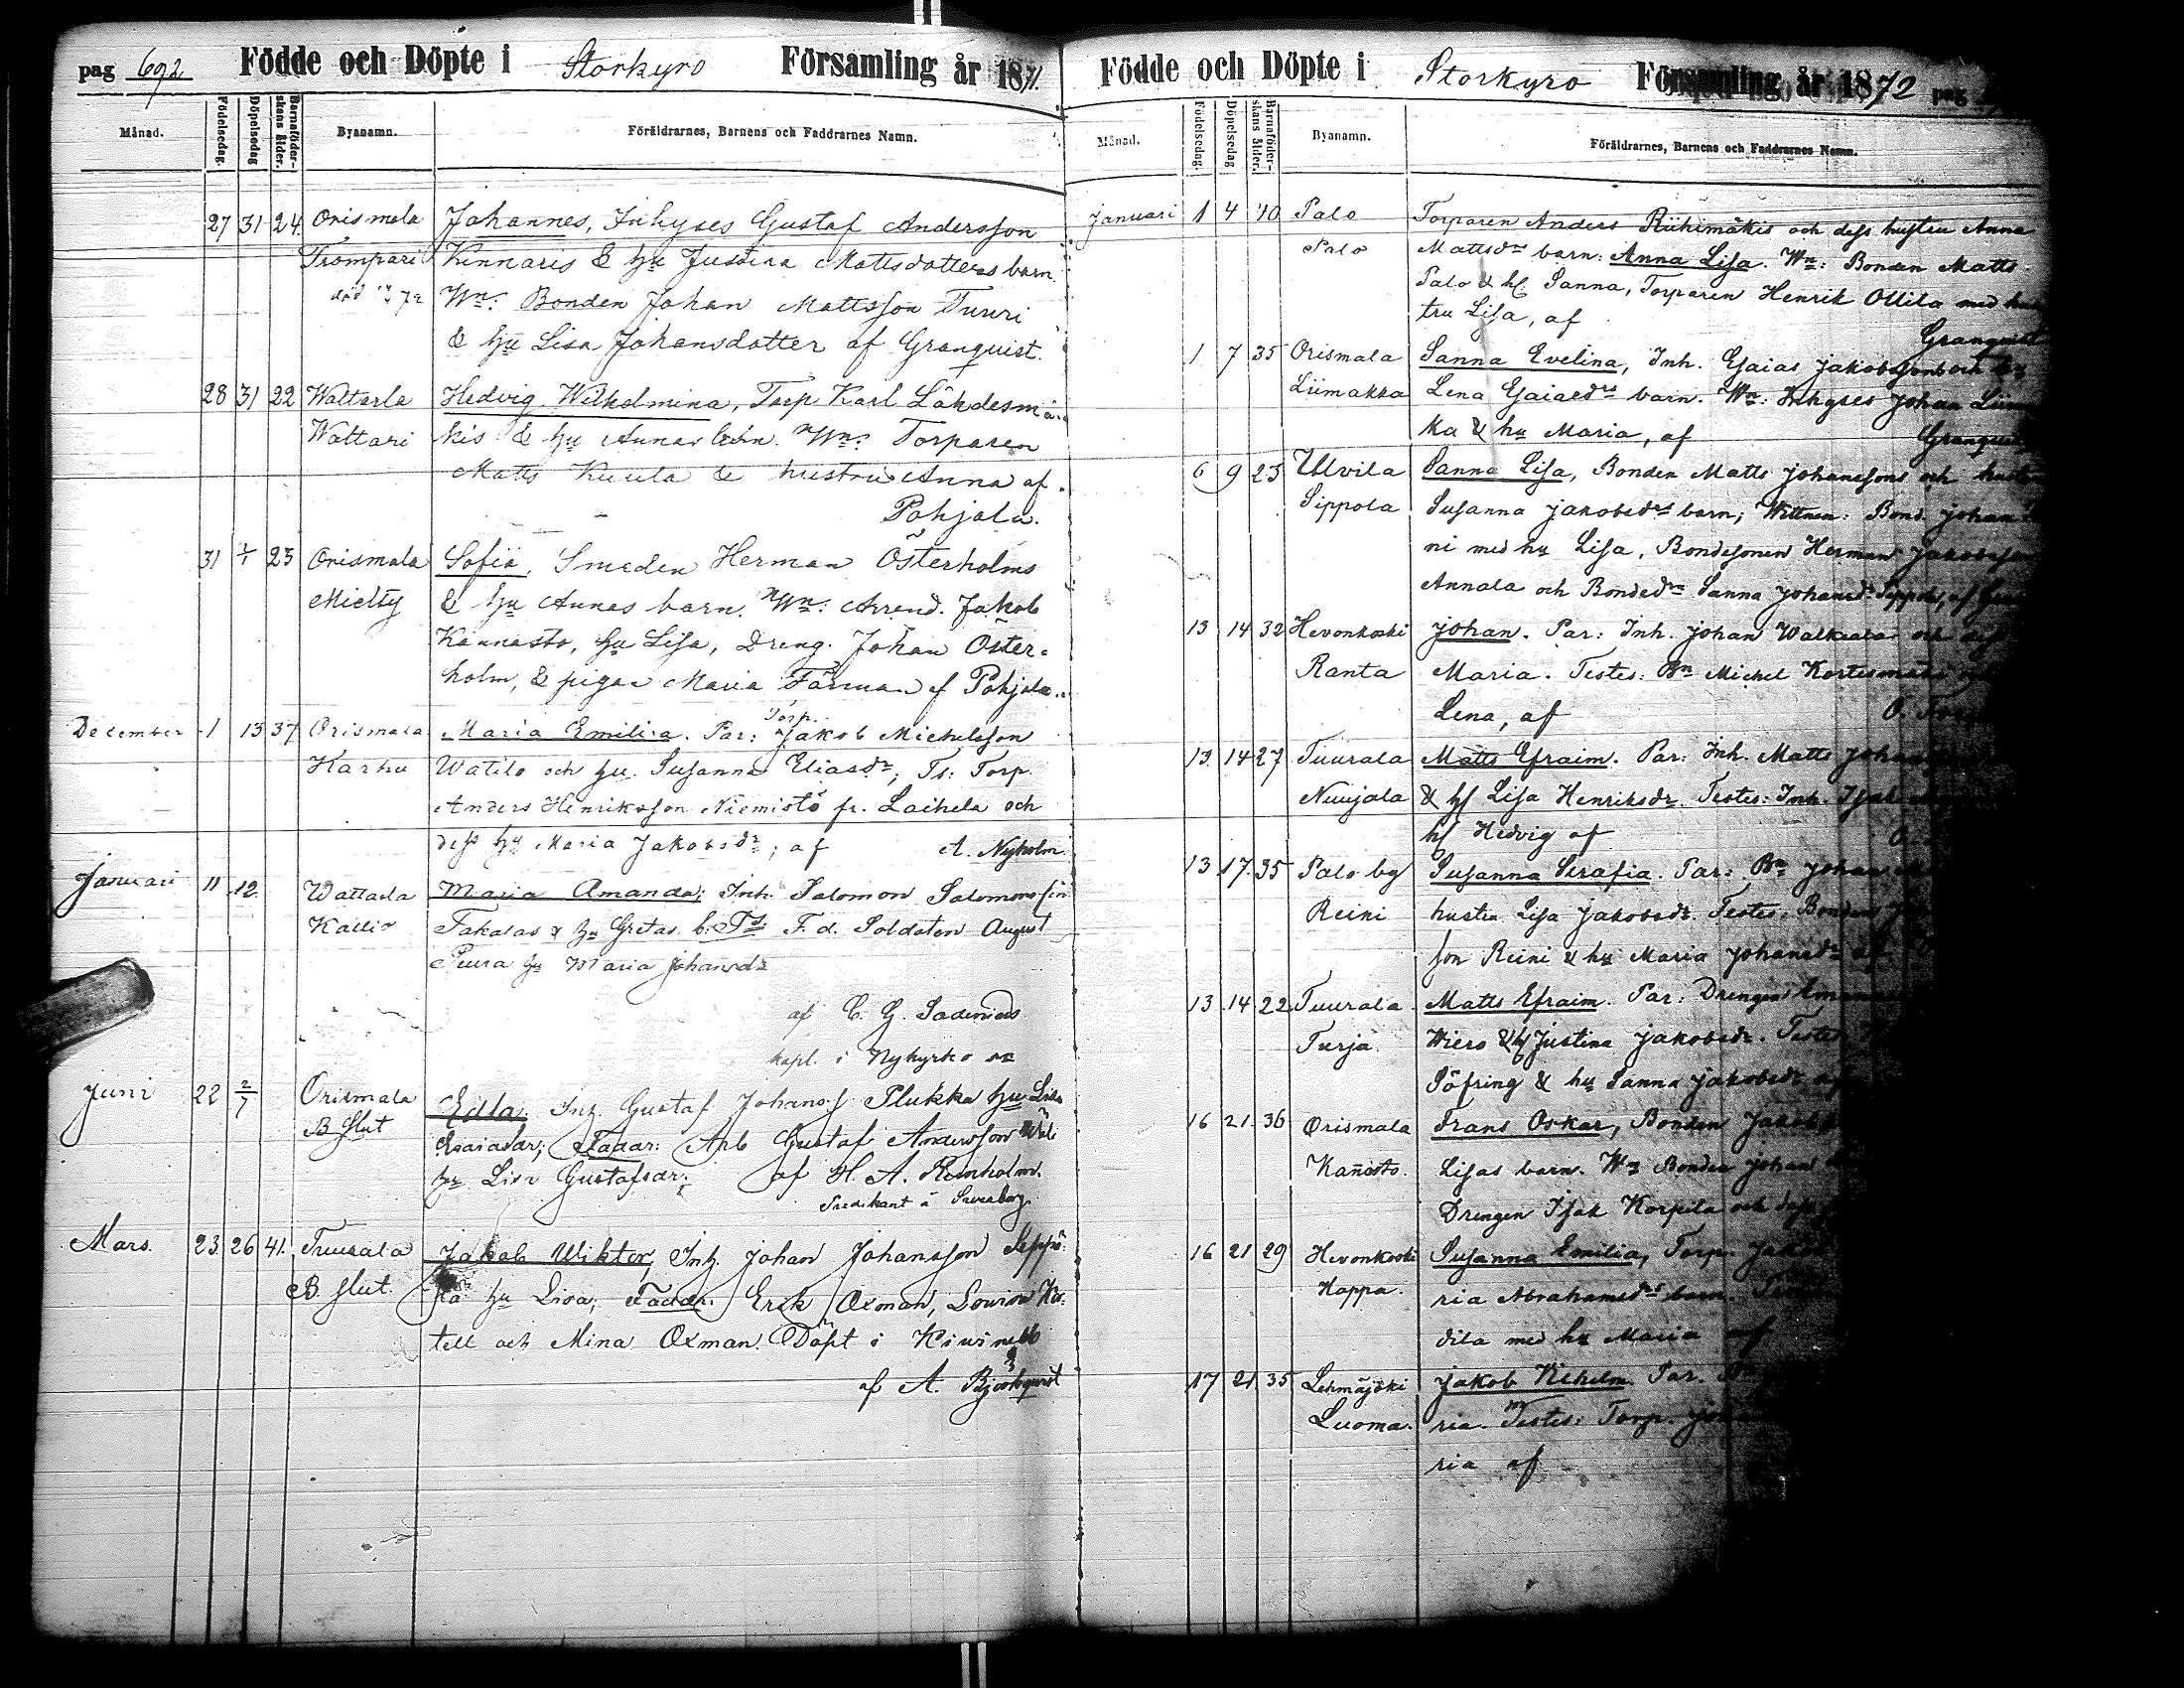 pag 692 Födde och Döpte i Storkyro Församling år 1871.
Månad. Födelsedag. Döpelsedag Barnaföderskans ålder. Byanamn. Föräldrarnes, Barnens och Faddrarnes Namn.
27 31 24. Orismala Johannes, Inhyses Gustaf Andersson
Trompari Kinnaris & hu Justina Mattsdotters barn.
död 72 Wn: Bonden Johan Mattsson Turri
& hu Lisa Johansdotter af Granquist.
28 31 22 Wattarla Hedvig Wilhelmina, Torp Karl Lähdesmä-
Wattari kis & hu Annas barn. Wn: Torparen
Matts Kuula & hustru Anna af
Pohjala.
31 1/1 25 Orismala Sofia, Smeden Herman Österholms
Mielty & hu Annas barn. Wn: Arrend. Jakob
Kannasto, hu Lisa, Dreng. Johan Öster-
holm, & pigan Maria Färman af Pohjala.
December 1 13 37 Orismala Maria Emilia. Par: Torp. Jakob Michelsson
Karhu Watilo och hu. Susanna Eliasdr; Ts: Torp.
Anders Henriksson Niemistö fr. Laihela och
dess hu Maria Jakobsdr; af A. Nyholm
Januari 11 12 Wattarla Maria Amanda; Inh. Salomon Salomonssin
Kallio Takalas & hu Gretas b. Ts: F. d. Soldaten August
Peura hu Maria Johansdr
af C. G. Sadenius
kapl. i Nykyrko
Juni 22 2/7 Orismala Edla. Inh. Gustaf Johanss Plukka hu Lisa
B. slut Esaiadar; Fadar: Arb Gustaf Andersson
hu Lisa Gustafsdr; af H. A. Renholm.
Predikant å Sveaborg.
Mars. 23 26 41. Tuurala Jakob Wiktor, Inh. Johan Johansson Seppä
B. slut. hu Lisa; Faddr. Erik Oxman, Lovisa Ka-
tell och Mina Oxman. Döpt i Kiuinebb
af A. Björkqvist
Födde och Döpte i Storkyro Församling år 1872 pag
Månad. Födelsedag. Döpelsedag Barnaföderskans ålder. Byanamn. Föräldrarnes, Barnens och Faddrarnes Namn.
Januari 1 4 40 Palo Torparen Anders Riihimäkis och dess hustru Anna
Palo Mattsdrs barn: Anna Lisa. Wn: Bonden Matts
Palo & hf. Sanna, Torparen Henrik Ollila med hus
tru Lisa, af Granquist
1 7 35 Orismala Sanna Evelina, Inh. Esaias Jakobssons och hu
Liimakka Lena Esaiaedrs barn. Wn: Inhyses Johan Liima
ka & hu Maria, af Granquist
6 9 23 Ullvila Sanna Lisa, Bonden Matts Johanssons och hustru
Sippola Susanna Jakobsdrs barn; Wittnen: Bond. Johan
ni med hu Lisa, Bondesonen Herman Jakobsson
Annala och Bondedr Sanna Johansdr Sippola, af
13 14 32 Hevonkoski Johan. Par: Inh. Johan Walkiala och dess
Ranta Maria. Testes: Bn Michel Kortesmäki
Lena, af O.
13 14 27 Tuurala Matts Efraim. Par: Inh. Matts Johan
Nuujala & hf Lisa Henriksdr. Testes: Inh. Isak
hf Hedvig af
13 17 35 Palo by Susanna Serafia. Par: Bn Johan
Reini hustru Lisa Jakobsdr. Testes: Bonden
son Reini & hu Maria Johansdr af
13 14 22 Tuurala Matts Efraim. Par: Drengen
Turja Wiero & hf Justina Jakobsdr. Testes
Söfring & hu Sanna Jakobsdr af
16 21 36 Orismala Frans Oskar, Bonden Jakob
Kañosto. Lisas barn. Wn Bonden Johan
Drengen Isak Korpila och dess
16 21 29 Hevonkoski Susanna Emilia, Torp. Jakob
Kappa. ria Abrahamsdrs barn.
dila med hu Maria af
17 21 35 Lehmäjoki Jakob Wilhelm. Par.
Luoma. ria. Testes: Torp.
ria af